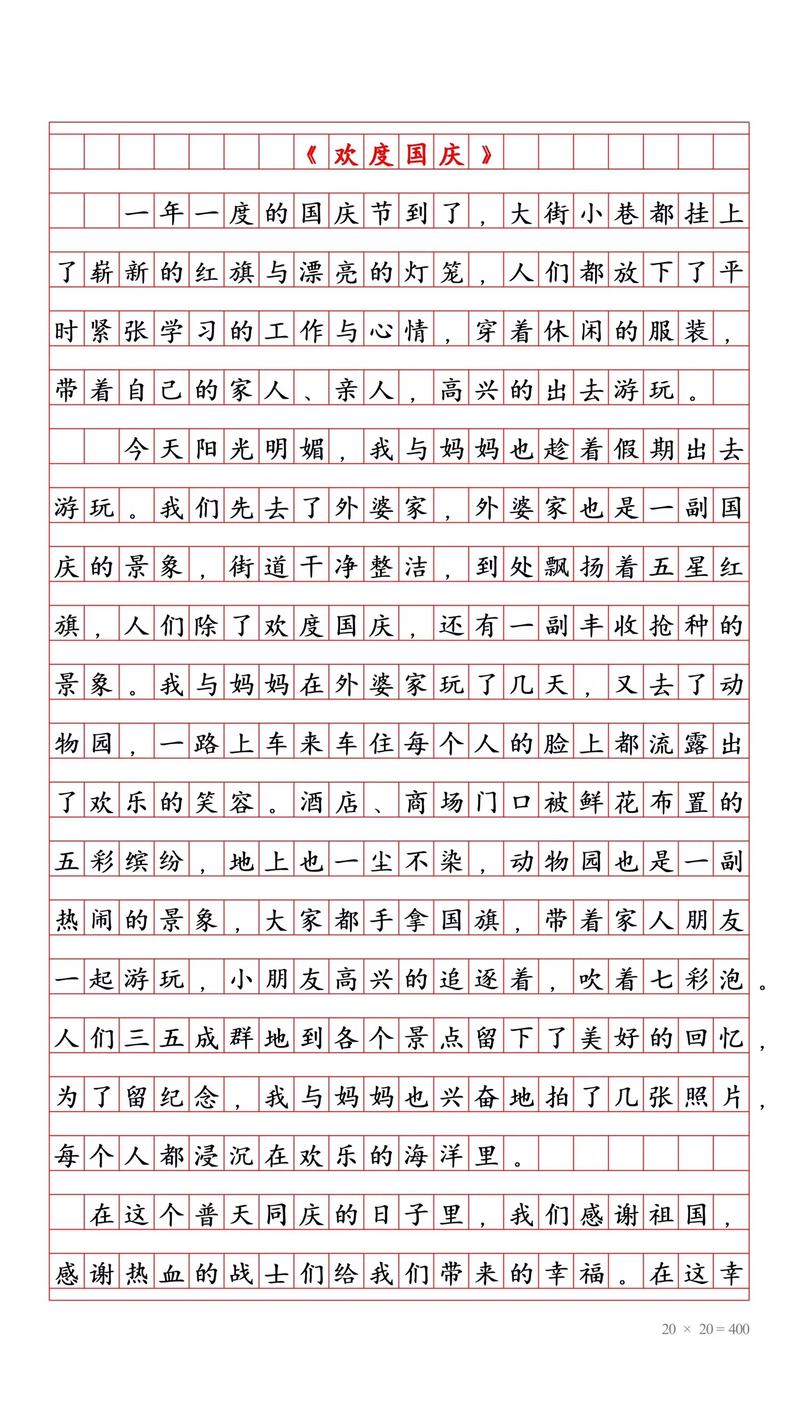 《欢度国庆》
一年一度的国庆节到了，大街小巷都挂上
了崭新的红旗与漂亮的灯笼，人们都放下了平
时紧张学习的工作与心情，穿着休闲的服装，
带着自己的家人、亲人，高兴的出去游玩。
今天阳光明媚，我与妈妈也趁着假期出去
游玩。我们先去了外婆家，外婆家也是一副国
庆的景象，街道干净整洁，到处飘扬着五星红
旗，人们除了欢度国庆，还有一副丰收抢种的
景象。我与妈妈在外婆家玩了几天，又去了动
物园，一路上车来车住每个人的脸上都流露出
了欢乐的笑容。酒店、商场门口被鲜花布置的
五彩缤纷，地上也一尘不染，动物园也是一副
热闹的景象，大家都手拿国旗，带着家人朋友
一起游玩，小朋友高兴的追逐着，吹着七彩泡。
人们三五成群地到各个景点留下了美好的回忆，
为了留纪念，我与妈妈也兴奋地拍了几张照片，
每个人都浸沉在欢乐的海洋里。
在这个普天同庆的日子里，我们感谢祖国，
感谢热血的战士们给我们带来的幸福。在这幸
20 × 20 = 400